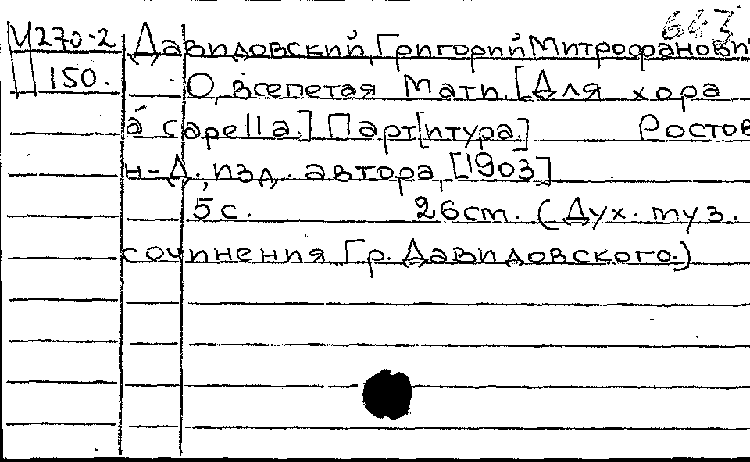 647
Ц270-2 Давидовский, Григорий Митрофанови
150. О, всепетая Мати. [Для хора
a capella.] Парт[итура.] Ростов
н-Д., изд. автора, [1903]
5 с. 26 cm. (Дух. муз.
сочинения Гр. Давидовского.)